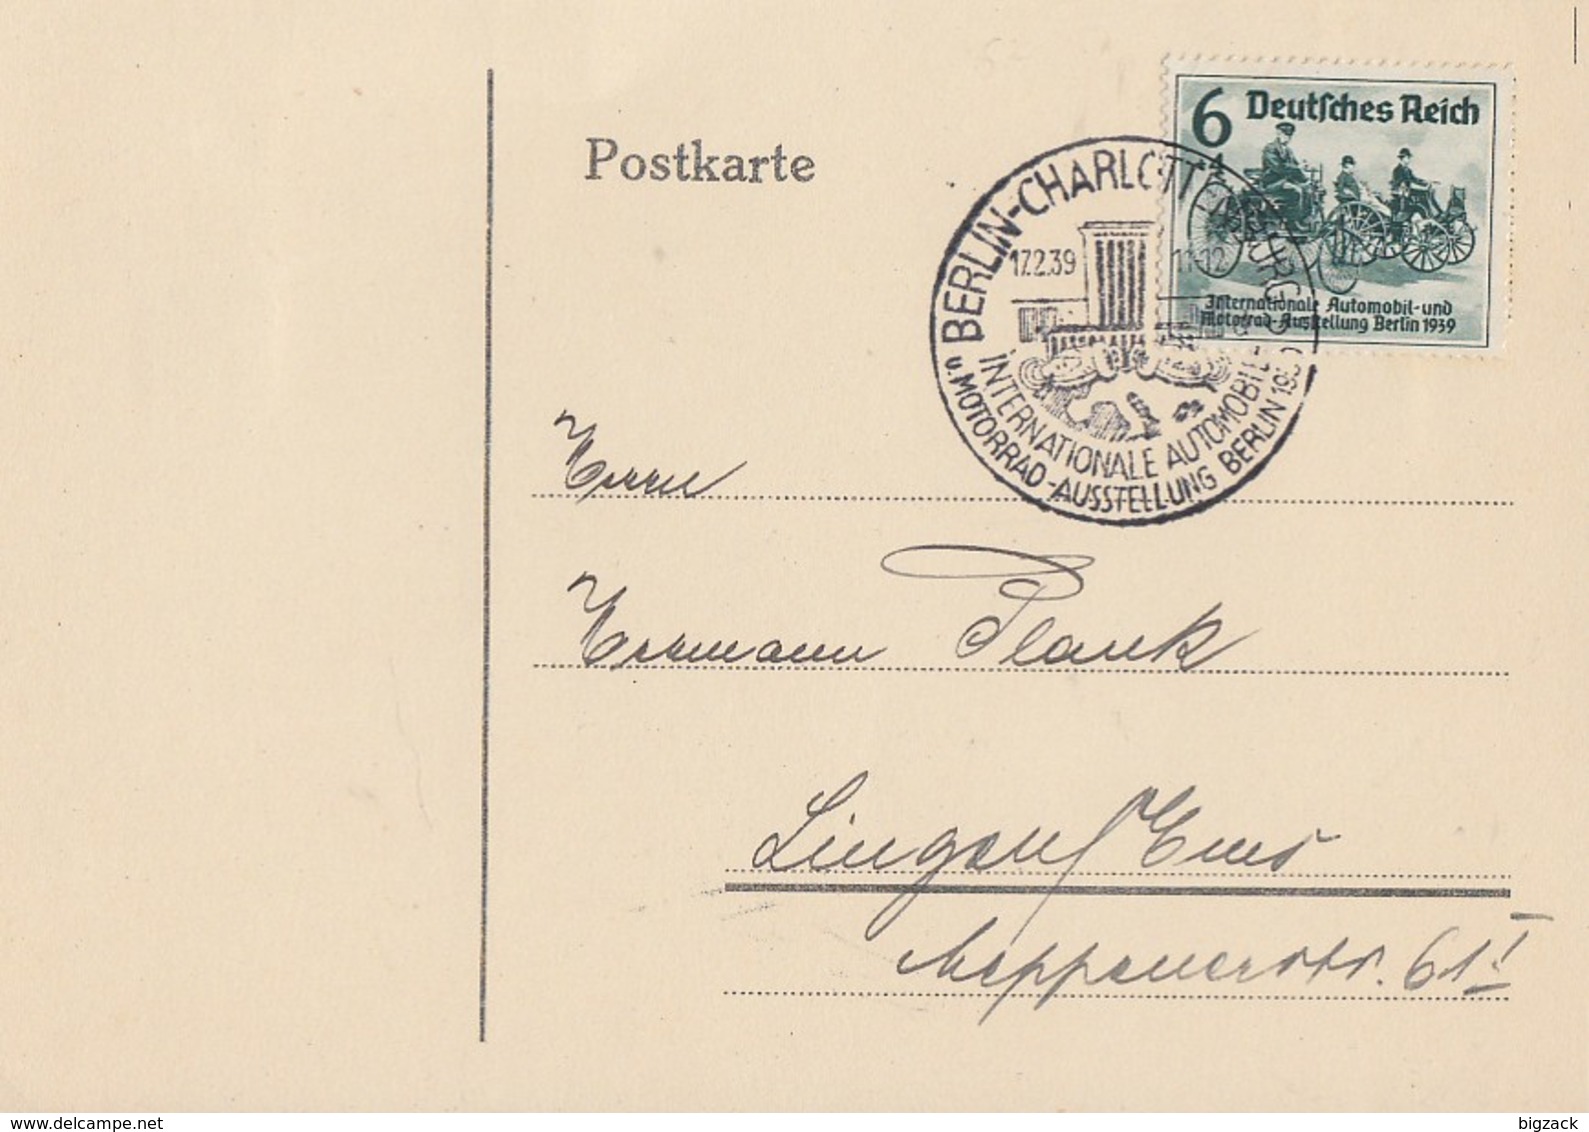 Postkarte
6+4 Deutsches Reich
Internationale Automobil- und
Motorrad-Ausstellung Berlin 1939
BERLIN-CHARLOTTENBURG
17.2.39 11-12
INTERNATIONALE AUTOMOBIL-
u. MOTORRAD-AUSSTELLUNG BERLIN 1939
Herrn
Hermann Plank
Lingen/Ems
Meppenerstr. 61 I
delcampe.net
bigzack